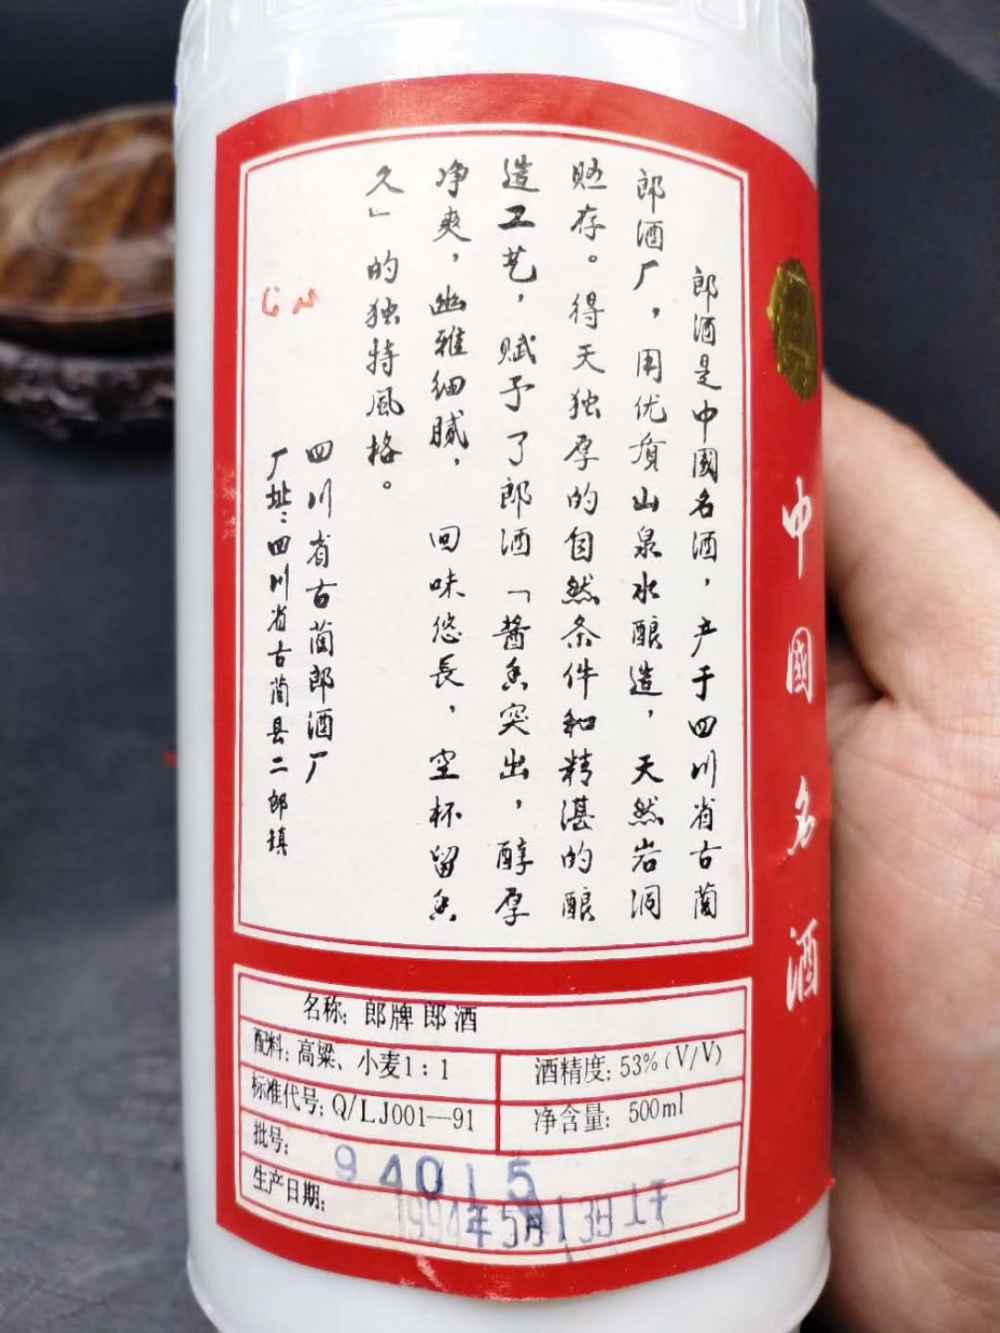 中國名酒
郎酒是中國名酒，产于四川省古蔺
郎酒厂，用优质山泉水酿造，天然岩洞
贮存。得天独厚的自然条件和精湛的酿
造工艺，赋予了郎酒「酱香突出，醇厚
净爽，幽雅细腻，回味悠長，空杯留香
久」的独特風格。
四川省古蔺郎酒厂
厂址：四川省古蔺县二郎镇
名称：郎牌郎酒
配料：高粱、小麦1：1
酒精度：53%（V/V）
标准代号：Q/LJ001—91
净含量：500ml
批号：94015
生产日期：1994年5月13日